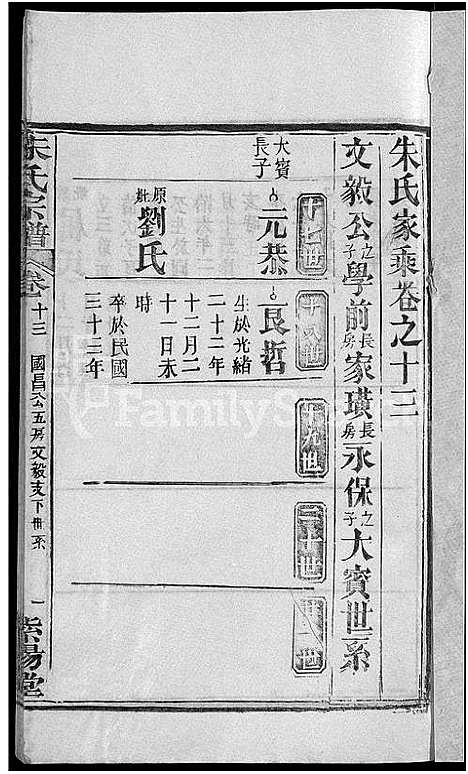 朱氏家乘卷之十三
文毅公之子學前長房家璜長房永保之子大賓世系
十七世
十八世
十九世
二十世
廿一世
大賓長子
元恭
原妣
劉氏
良哲
生於光緒
二十二年
十二月二
十一日未
時
卒於民國
三十三年
朱氏宗譜
卷
十三
國昌公五房文毅支下世系
一
紫陽堂
FamilySearch